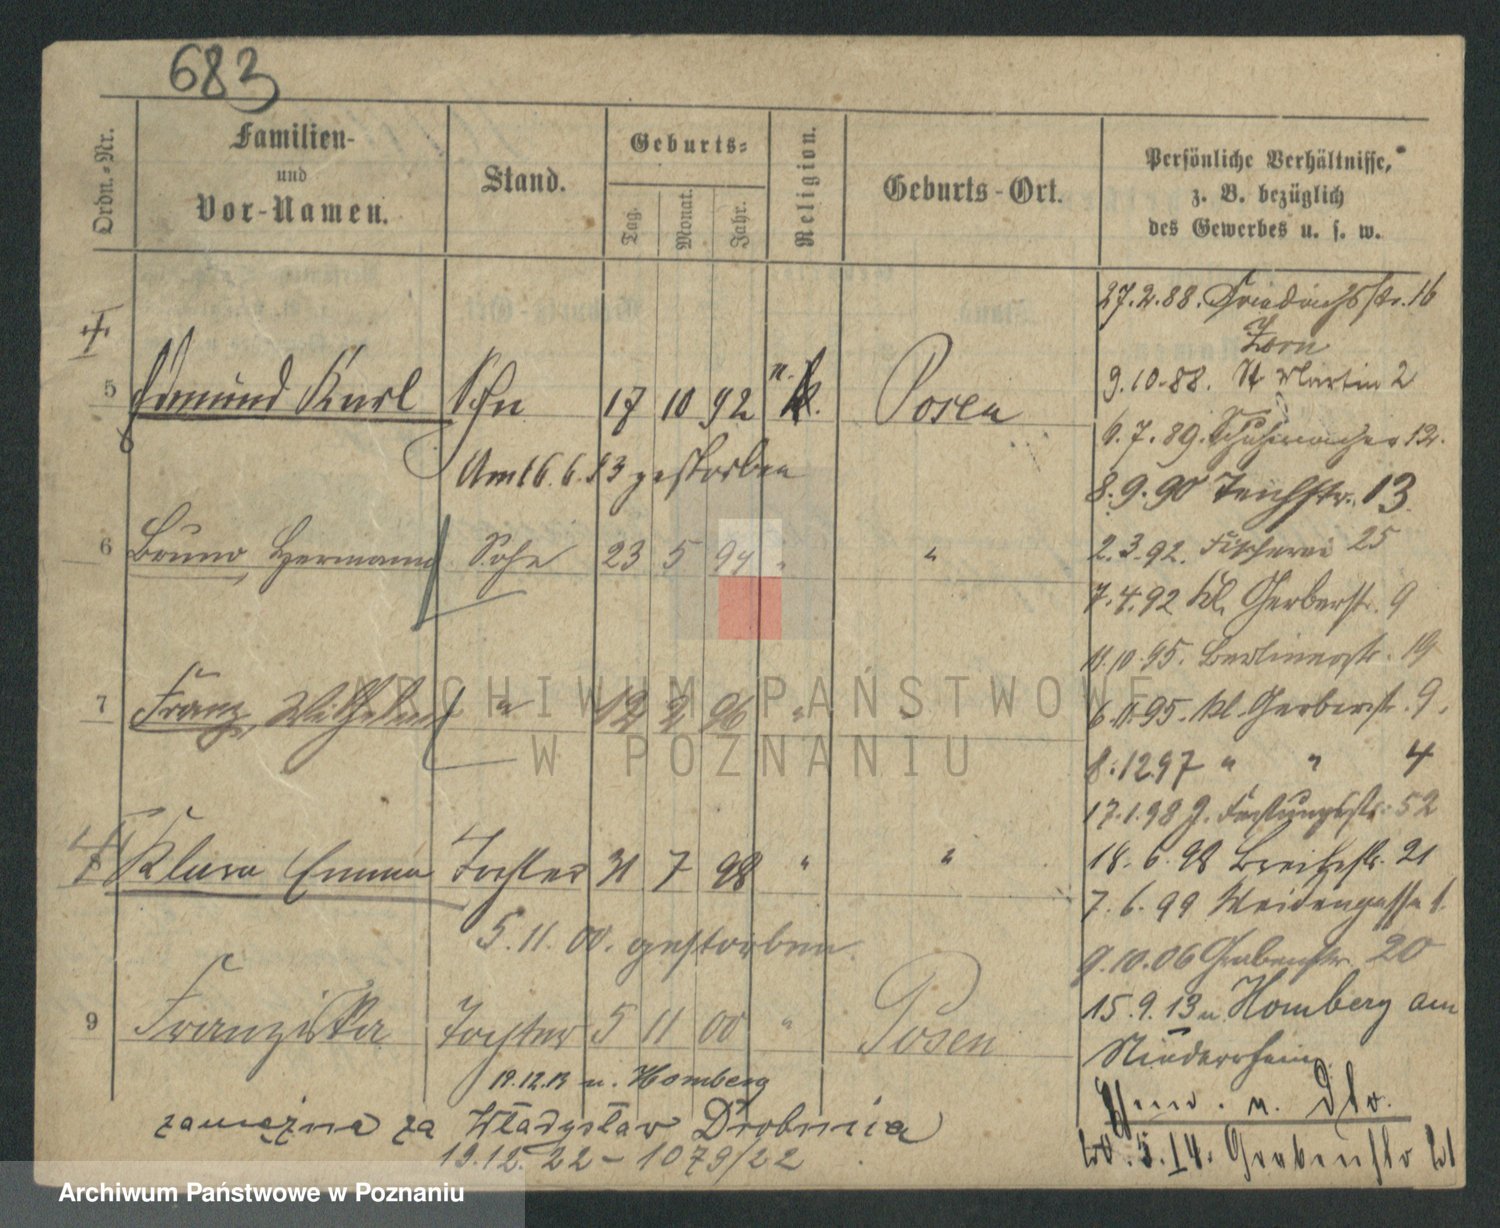 683
Ordn.-Nr.
Familien-
und
Vor-Namen.
Stand.
Geburts-
Tag.
Monat.
Jahr.
Religion.
Geburts-Ort.
Persönliche Verhältnisse,
z. B. bezüglich
des Gewerbes u. s. w.
27.2.88. Friedrichsstr. 16
Zorn
9.10.88. St Martin 2
5 Edmund Karl Sohn 17 10 92 k. Posen
6.7.89. Schuhmacher 12.
Am 16.6.93 gestorben
8.9.90 Teichstr. 13
6 Bruno Hermann Sohn 23 5 94 " "
2.3.92. Fischerei 25
7.4.92 Kl. Gerberstr. 9
11.10.95. Berlinerstr. 19
7 Franz Wilhelm " 12 2 96 " "
6.11.95. Kl. Gerberstr. 9.
8.12.97 " " 4
17.1.98 g. Festungsstr. 52
8 Klara Emma Tochter 31 7 98 " "
18.6.98 Breitestr. 21
7.6.99 Weidengasse 1.
5.11.00. gestorben
9.10.06 Grabenstr. 20
9 Franziska Tochter 5 11 00 " Posen
15.9.13 n. Homberg am
Niederrhein
19.12.13 n. Homberg
zamężna za Władysław Drobnica
19.12.22 - 1079/22
20.5.14. Grabenstr
ARCHIWUM PAŃSTWOWE
W POZNANIU
Archiwum Państwowe w Poznaniu